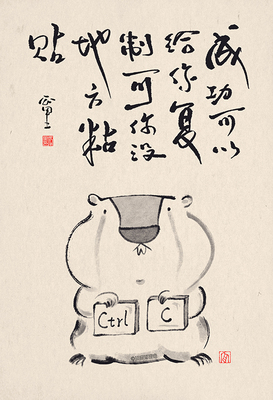 成功可以
给你复
制可你没
地方粘
贴
Ctrl
C